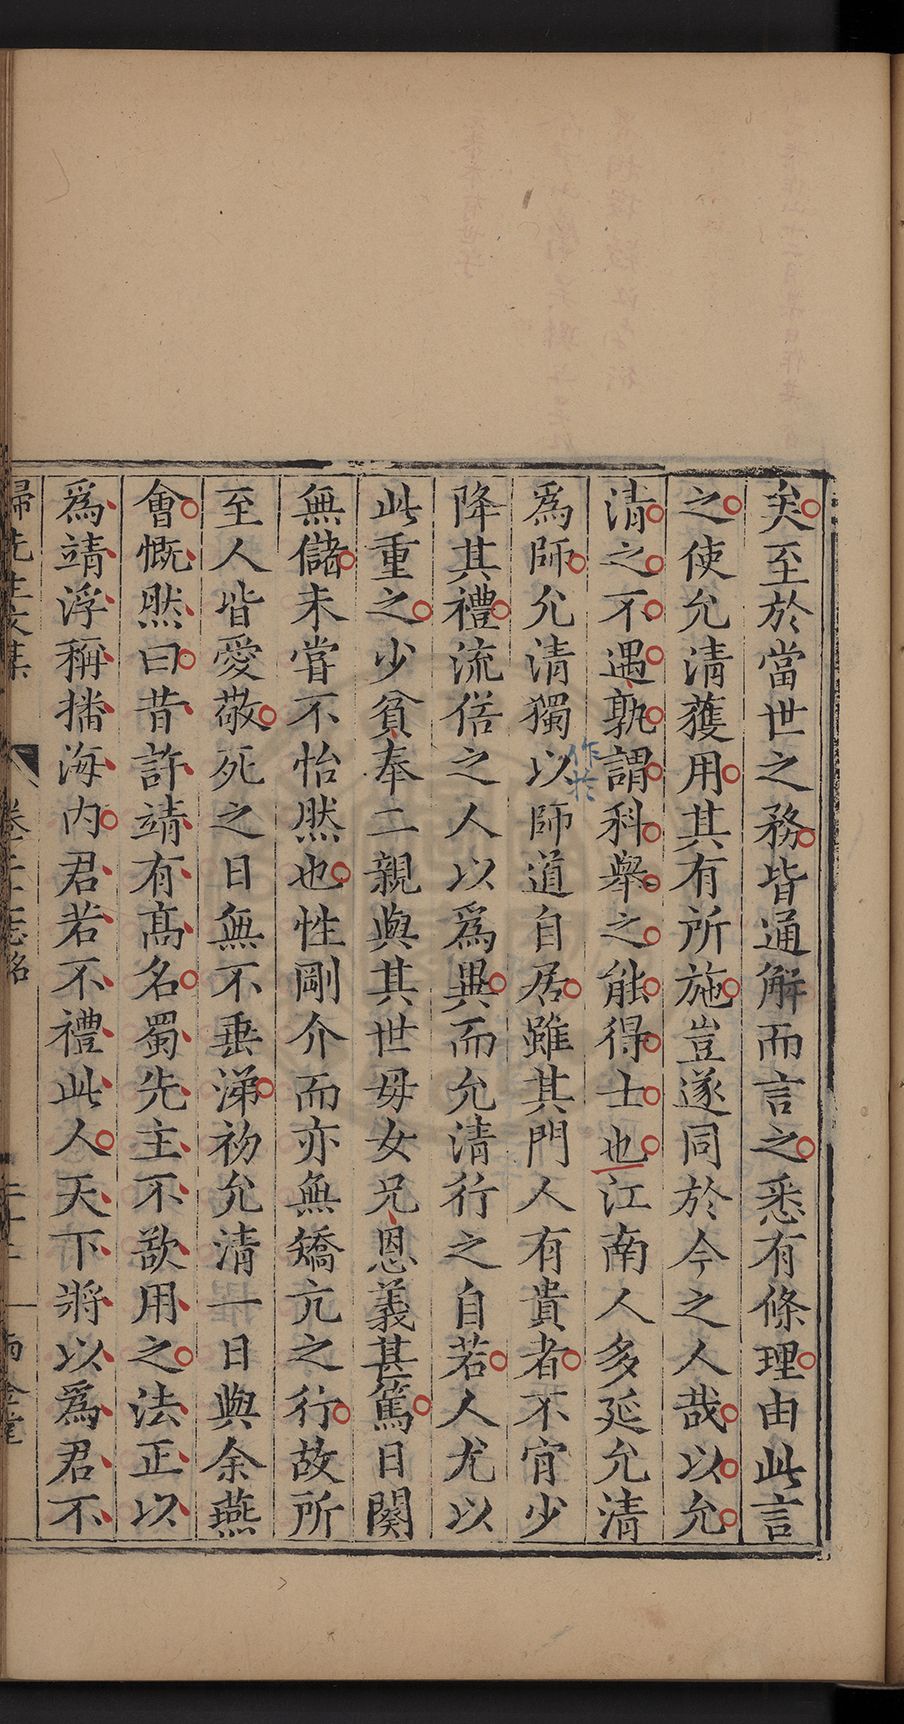 矣至於當世之務皆通解而言之悉有條理由此言
之使允清獲用其有所施豈遂同於今之人哉以允
清之不遇孰謂科舉之能得士也江南人多延允清
為師允清獨以師道自居雖其門人有貴者不肯少
作於
降其禮流俗之人以爲異而允清行之自若人尤以
此重之少貧奉二親與其世母女兄恩義甚篤日闋
無儲未嘗不怡然也性剛介而亦無矯亢之行故所
至人皆愛敬死之日無不垂涕初允清一日與余燕
會慨然曰昔許靖有高名蜀先主不欲用之法正以
爲靖浮稱播海内君若不禮此人天下將以爲君不
歸先生文集